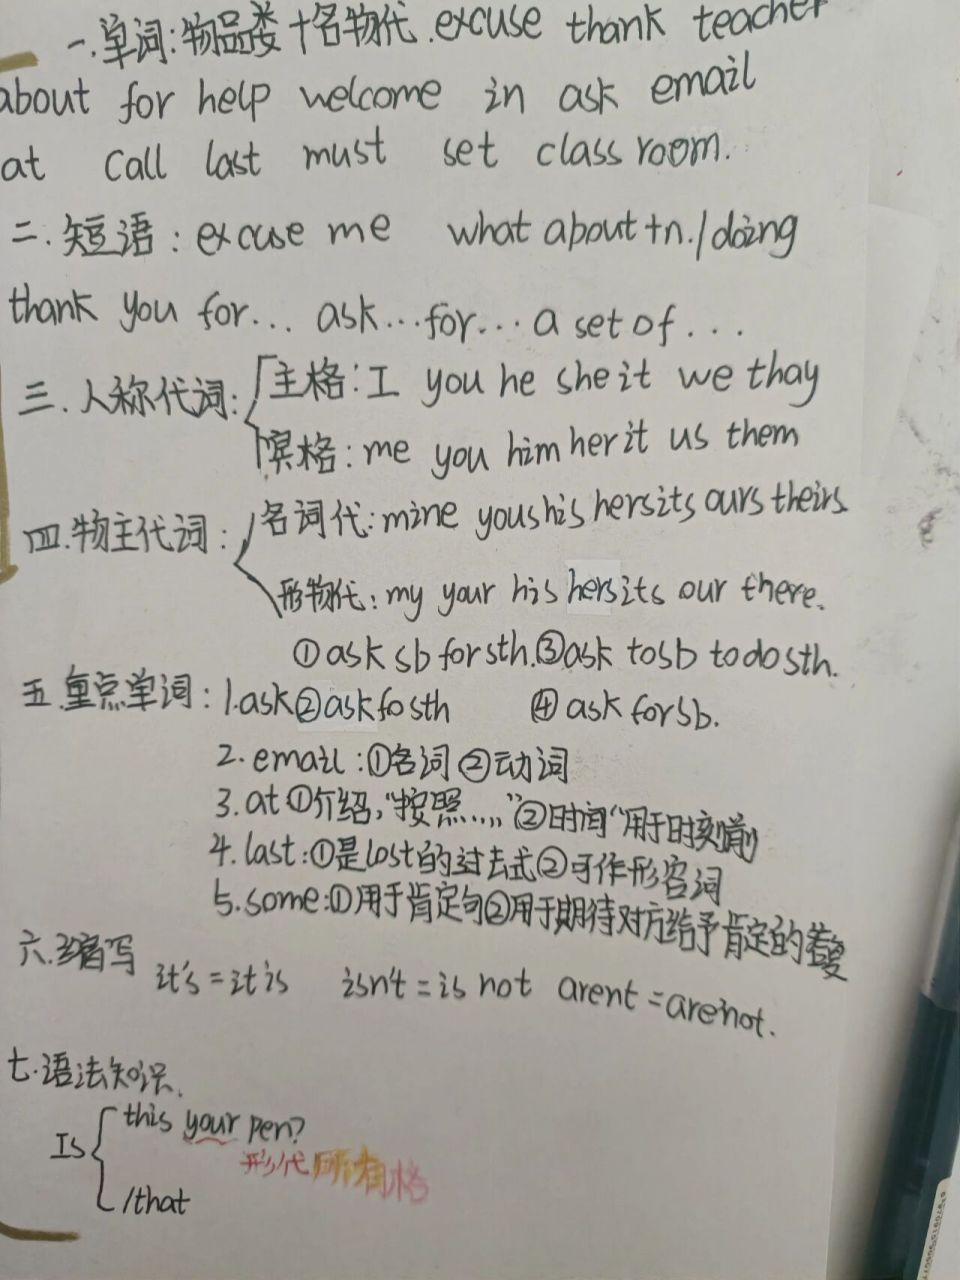 一.单词:物品类+名物代.excuse thank teacher
about for help welcome in ask email
at call last must set classroom.
二.短语:excuse me what about+n./doing
thank you for... ask...for... a set of...
三.人称代词:
主格:I you he she it we thay
宾格:me you him her it us them
四.物主代词:
名词代:mine yous his hers its ours theirs
形物代:my your his hers its our there.
①ask sb for sth.③ask to sb to do sth.
五.重点单词:1.ask②ask fo sth ④ask for sb.
2.email:①名词②动词
3.at①介绍,"按照....,"②时间"用于时刻前
4.last:①是lost的过去式②可作形容词
5.some:①用于肯定句②用于期待对方给予肯定的答复
六.缩写
it's=it is isn't=is not arent=are not.
七.语法知识.
Is
this your pen?
形代所有格
/that